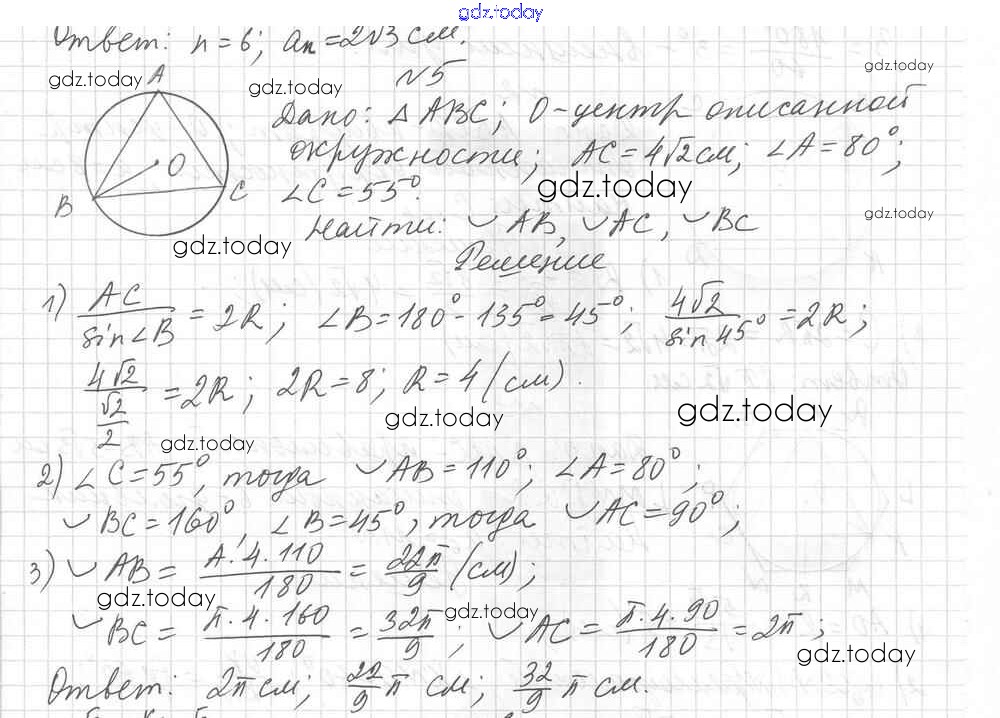 gdz.today
Ответ: n = 6; aₙ = 2√3 см.
gdz.today
A
№5
gdz.today
gdz.today
Дано: △ABC; O - центр описанной
окружности; AC = 4√2 см; ∠A = 80°;
O
B
C
∠C = 55°.
gdz.today
gdz.today
Найти: ◡AB, ◡AC, ◡BC
gdz.today
Решение
1) AC/sin∠B = 2R; ∠B = 180° - 135° = 45°; 4√2/sin 45° = 2R;
4√2/(√2/2) = 2R; 2R = 8; R = 4 (см).
gdz.today
gdz.today
gdz.today
2) ∠C = 55°, тогда ◡AB = 110°; ∠A = 80°;
◡BC = 160°, ∠B = 45°, тогда ◡AC = 90°;
3) ◡AB = π·4·110/180 = 22π/9 (см);
gdz.today
gdz.today
◡BC = π·4·160/180 = 32π/9; ◡AC = π·4·90/180 = 2π;
gdz.today
Ответ: 2π см; 22/9 π см; 32/9 π см.